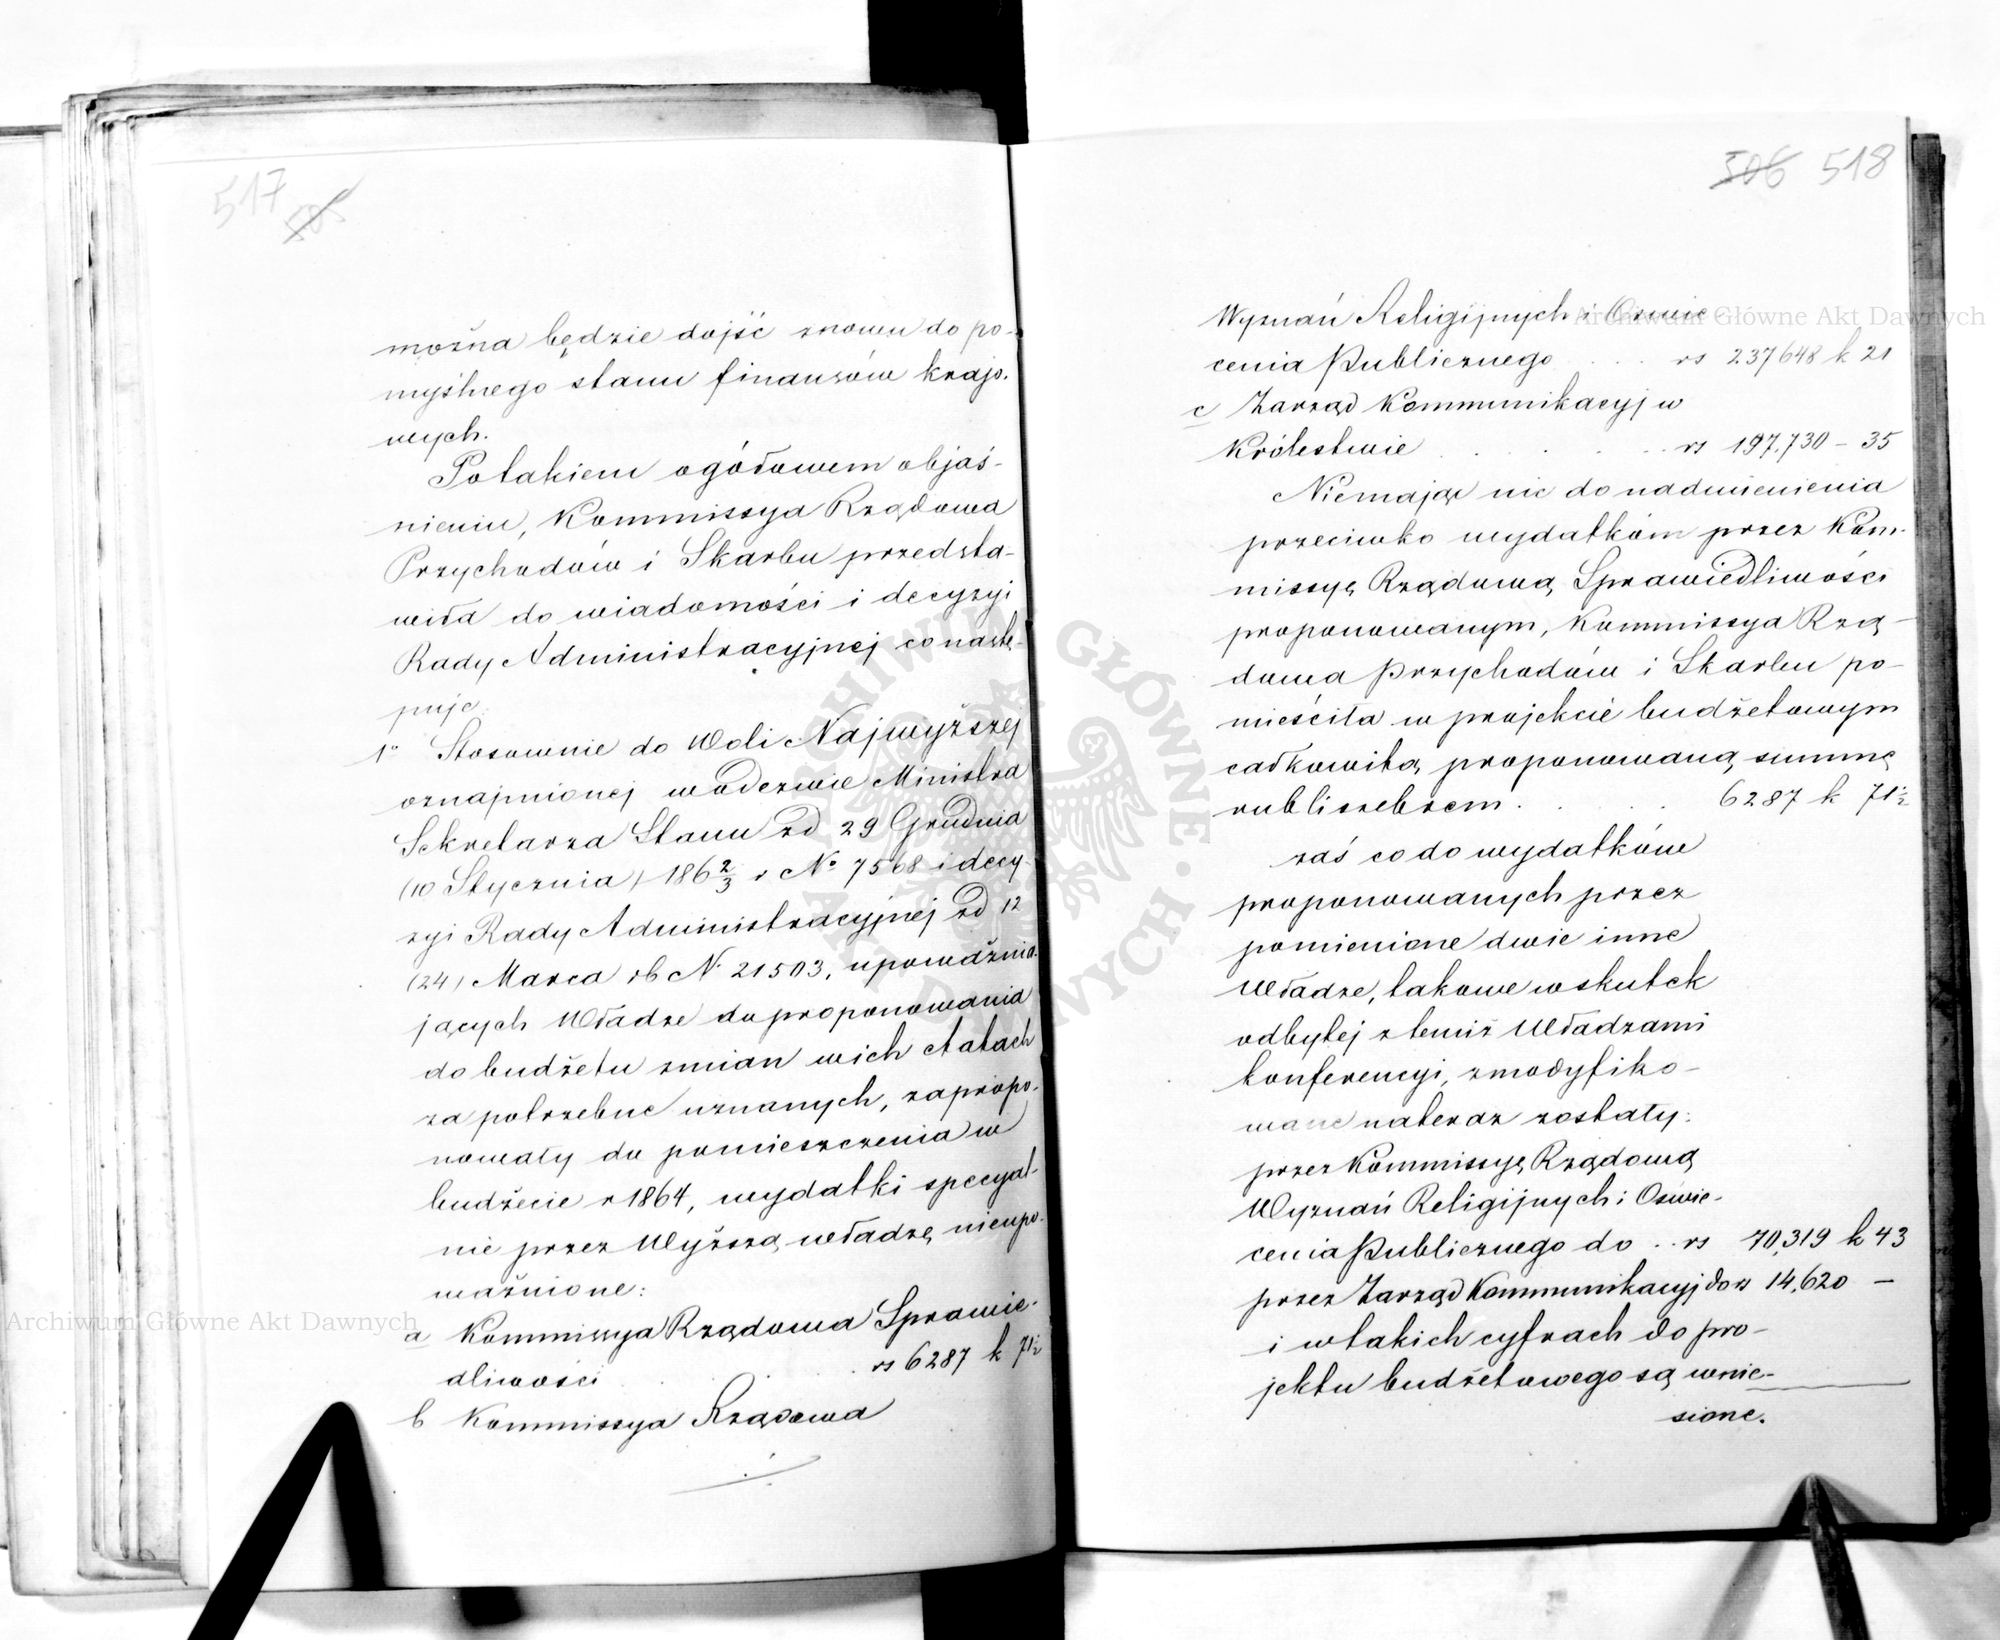 517 505
można będzie dojść znowu do po-
myślnego stanu finansów krajo-
wych.
Potakiem ogółowem objaś-
nieniu, Kommissya Rządowa
Przychodów i Skarbu przedsta-
wiła do wiadomości i decyzyi
Rady Administracyjnej co nastę-
puje:
1° Stosownie do Woli Najwyższej
oznajmionej wodezwie Ministra
Sekretarza Stanu zd 29 Grudnia
(10 Stycznia) 186 2/3 r No 7568 i decy-
zyi Rady Administracyjnej zd 12
(24) Marca rb N. 21503, upoważnia-
jących Władze do proponowania
do budżetu zmian wich etatach
za potrzebne uznanych, zapropo-
nowały do pomieszczenia w
budżecie r 1864, wydatki specyal-
nie przez Wyższą władzę nieupo-
ważnione:
a Kommissya Rządowa Sprawie-
dliwości . . . rs 6287 k 71½
b Kommissya Rządowa
506 518
Wyznań Religijnych i Oświe-
cenia Publicznego . . . rs 237648 k 21
c Zarząd Kommunikacyj w
Królestwie . . . . . rs 197.730 – 35
Niemając nic do nadmienienia
przeciwko wydatkom przez Kom-
missyę Rządową Sprawiedliwości
proponowanym, Kommissya Rzą-
dowa Przychodów i Skarbu po-
mieściła w projekcie budżetowym
całkowitą proponowaną summę
rubli srebrem . . . . 6287 k 71½
zaś co do wydatków
proponowanych przez
pomienione dwie inne
Władze, takowe wskutek
odbytej z temiż Władzami
konferencyi, zmodyfiko-
wane nateraz zostały:
przez Kommissyę Rządową
Wyznań Religijnych i Oświe-
cenia Publicznego do . . rs 70,319 k 43
przez Zarząd Kommunikacyj do rs 14,620 –
i w takich cyfrach do pro-
jektu budżetowego są wnie-
sione.
Archiwum Główne Akt Dawnych
Archiwum Główne Akt Dawnych
ARCHIWUM GŁÓWNE AKT DAWNYCH